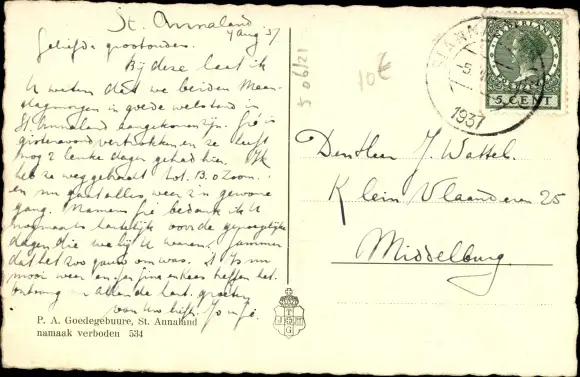 St. Annaland
4 Aug 37
Geliefde grootouders.
Bij deze laat ik
U weten dat we beiden Maan-
dagmorgen in goede welstand in
St. Annaland aangekomen zijn. is
gisterenavond vertrokken en ze heeft
nog 2 leuke dagen gehad hier. Ik
heb ze weggebracht tot B. o Zoom.
en nu gaat alles weer z'n gewone
gang. Namens bedank ik U
nogmaals hartelijk voor de gezellige
dagen die we bij U waren. Jammer
dat het zoo gauw om was. 't Is nu
mooi weer en
ontvang allen de hart. groeten
van Uw liefh.
P. A. Goedegebuure, St. Annaland
namaak verboden 534
5 06/21
10 €
NEDERLAND
5 CENT
ST ANNALAND
1937
Den Heer J. Wattel.
Klein Vlaanderen 25
Middelburg.